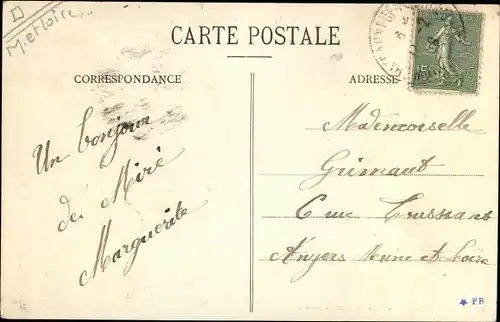 M.etLoire
CARTE POSTALE
CORRESPONDANCE
ADRESSE
Un bonjour
de Miré
Marguerite
Mademoiselle
Grimault
6 rue Toussaint
Angers Maine et Loire
★ PB